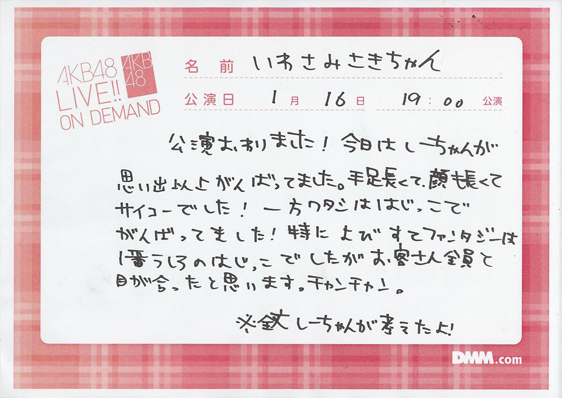 AKB48
LIVE!!
ON DEMAND
AKB
48
名前 いわさみさきちゃん
公演日 1月16日 19:00公演
公演おわりました!今日はしーちゃんが
思い出以上がんばってました。手足長くて、顔も長くて
サイコーでした!一方ワタシははじっこで
がんばってました!特によびすてファンタジーは
1番うしろのはじっこでしたがお客さん全員と
目が合ったと思います。チャンチャン。
※全文しーちゃんが考えたよ!
DMM.com